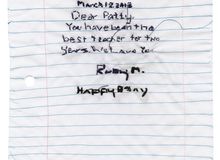 March 12 2013
Dear Patty.
You have been the
best teacher for two
years.
Ruby M.
Happy Day